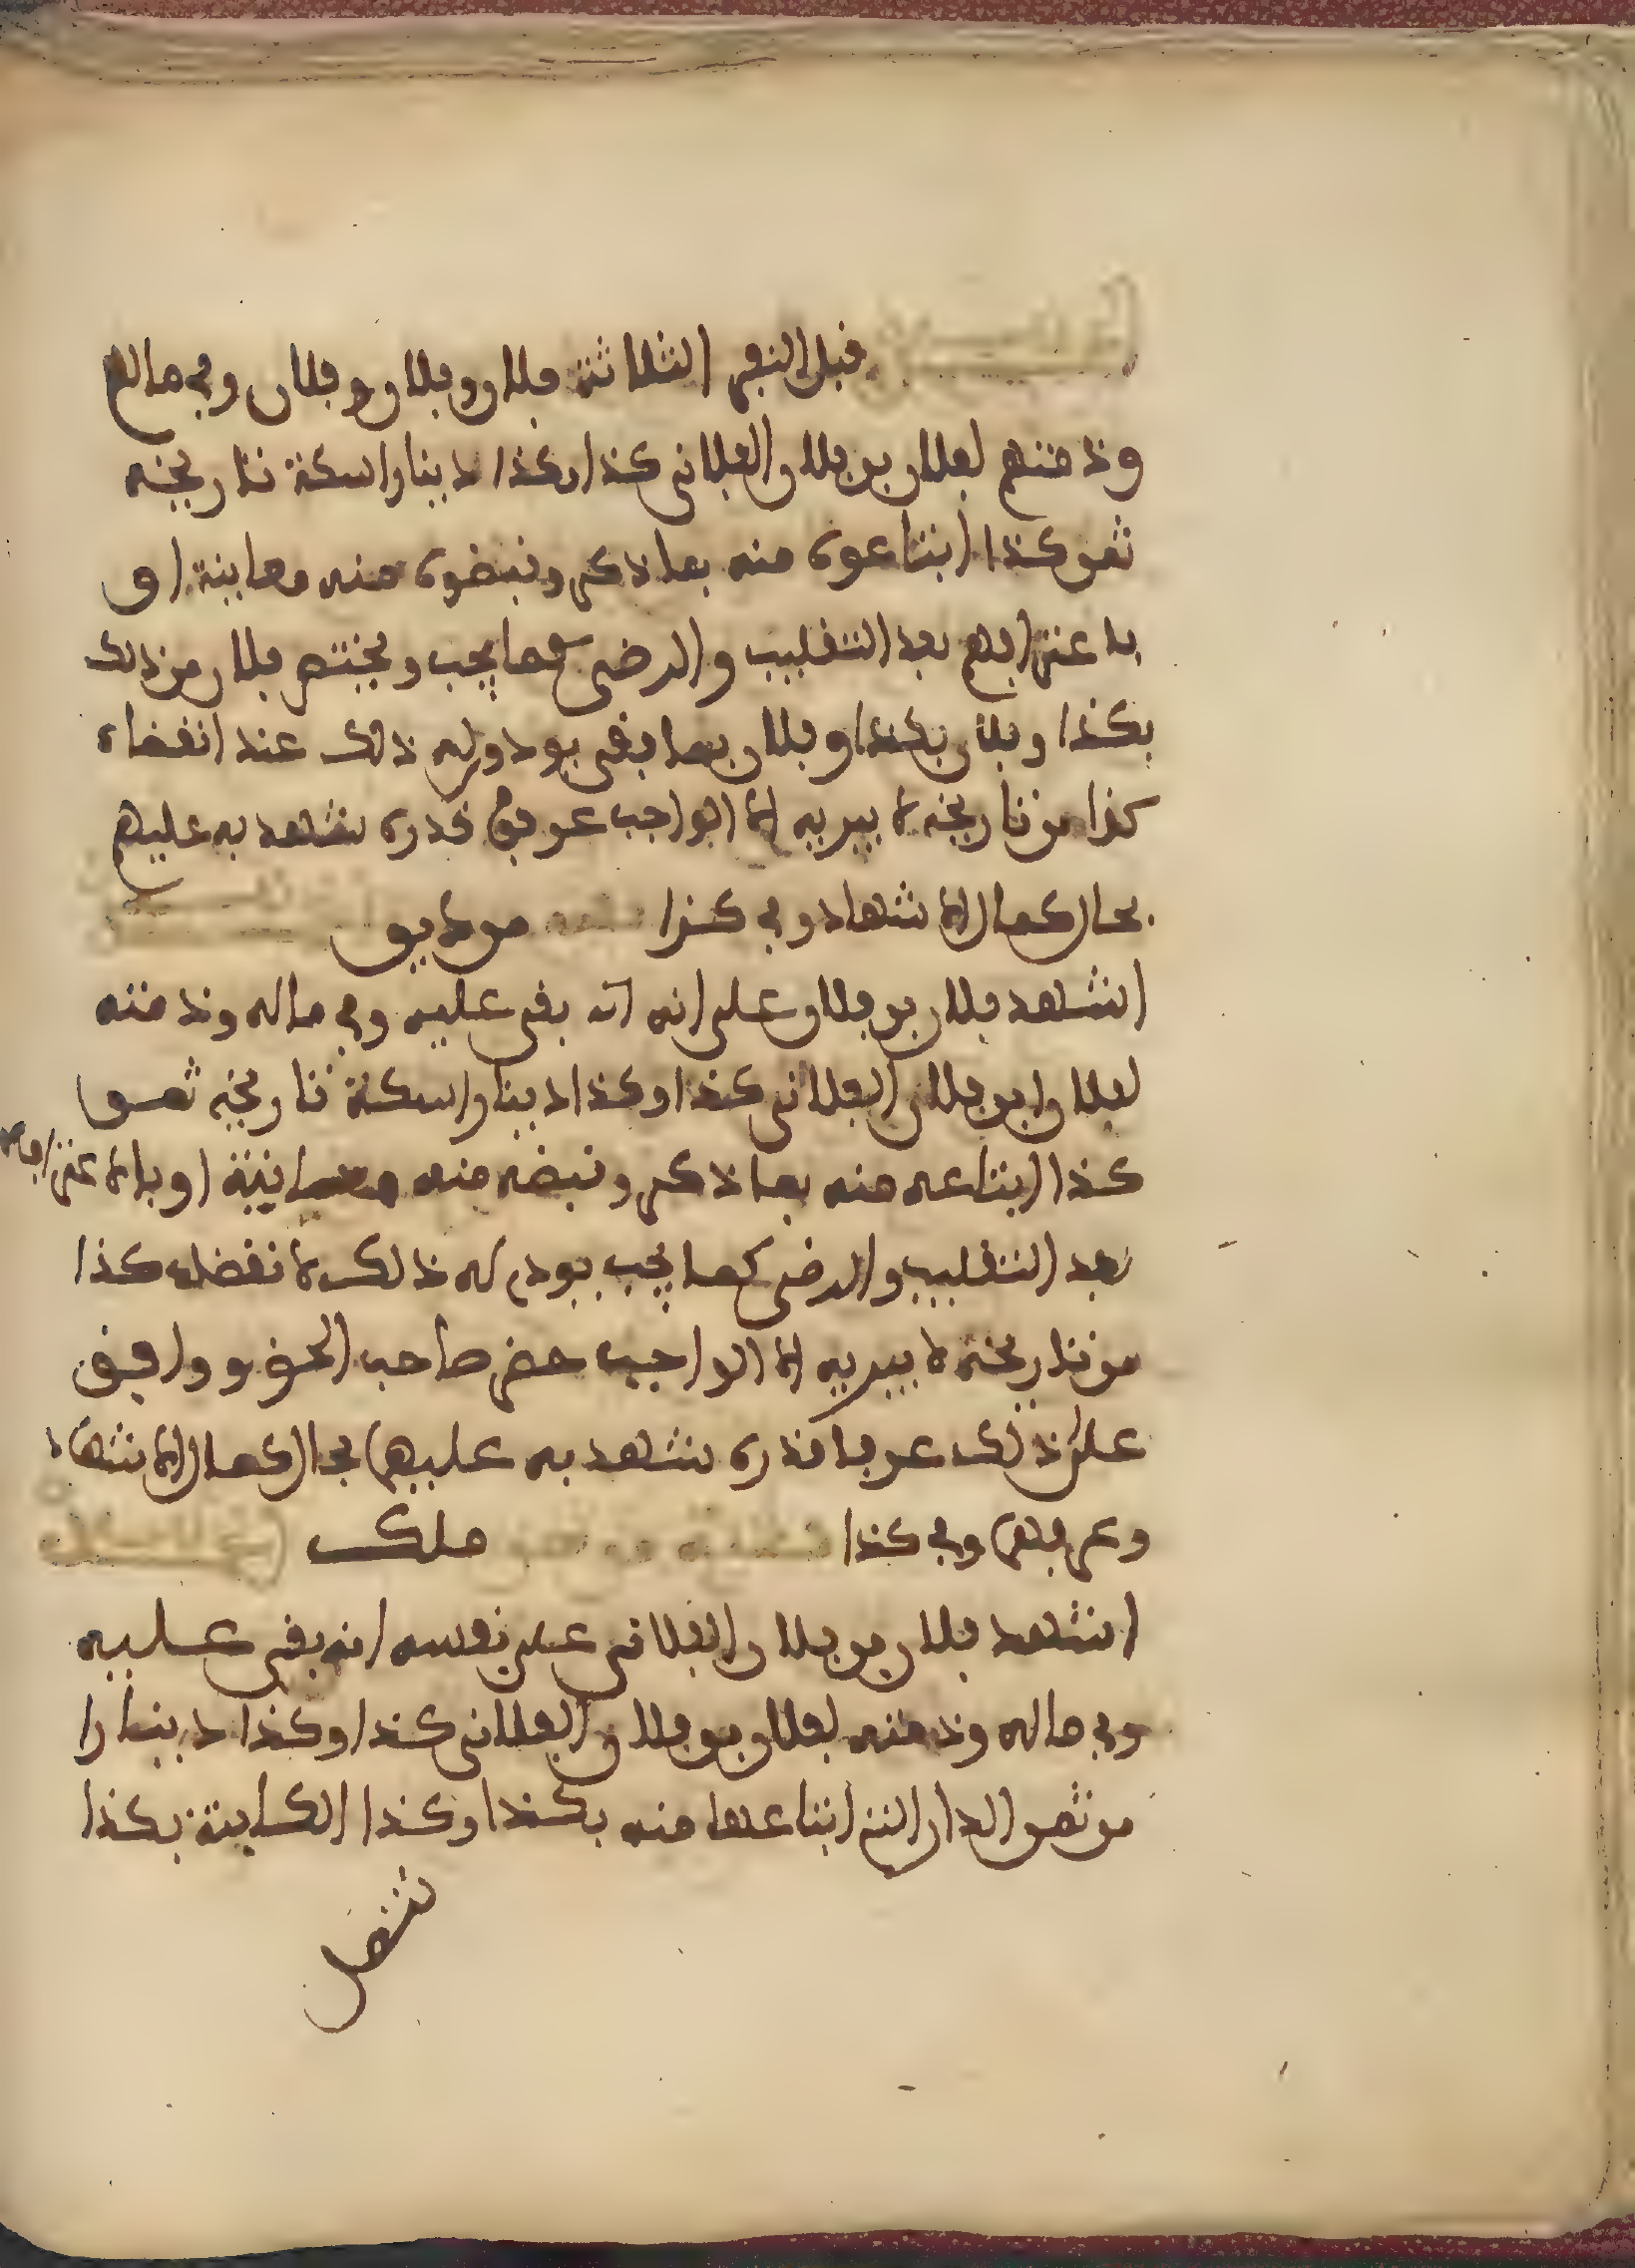 قبل النفر الثلاثة فلان وفلان وفلان وفي مالهم
وذمتهم لفلان بن فلان الفلاني كذا وكذا دينارا سكة تاريخه
ثمن كذا ابتاعوه منه بما ذكر وقبضوه منه معاينة او
باعترافهم بعد التقليب والرضى كما يجب ويختص فلان من ذلك
بكذا وفلان بكذا وفلان بما بقي يودوله ذلك عند انقضاء
كذا من تاريخه لا يبريه الا الواجب عرفوا قدره شهد به عليهم
بحال كمال الاشهاد وفي كذا من دين
اشهد فلان بن فلان على انه بقي عليه وفي ماله وذمته
لفلان ابن فلان الفلاني كذا وكذا دينارا سكة تاريخه ثمن
كذا ابتاعه منه بما ذكر وقبضه منه معاينة او بالاعترافه
بعد التقليب والرضى كما يجب يودي له ذلك لانقضاء كذا
من تاريخه لا يبريه الا الواجب حضر صاحب الحق ووافق
على ذلك عرفا قدره شهد به عليهما بحال كمال الاشهاد
وعرفهما وفي كذا ملك
اشهد فلان بن فلان الفلاني على نفسه انه بقي عليه
وفي ماله وذمته لفلان بن فلان الفلاني كذا وكذا دينارا
من ثمن الدار التي ابتاعها منه بكذا وكذا الكاينة بكذا